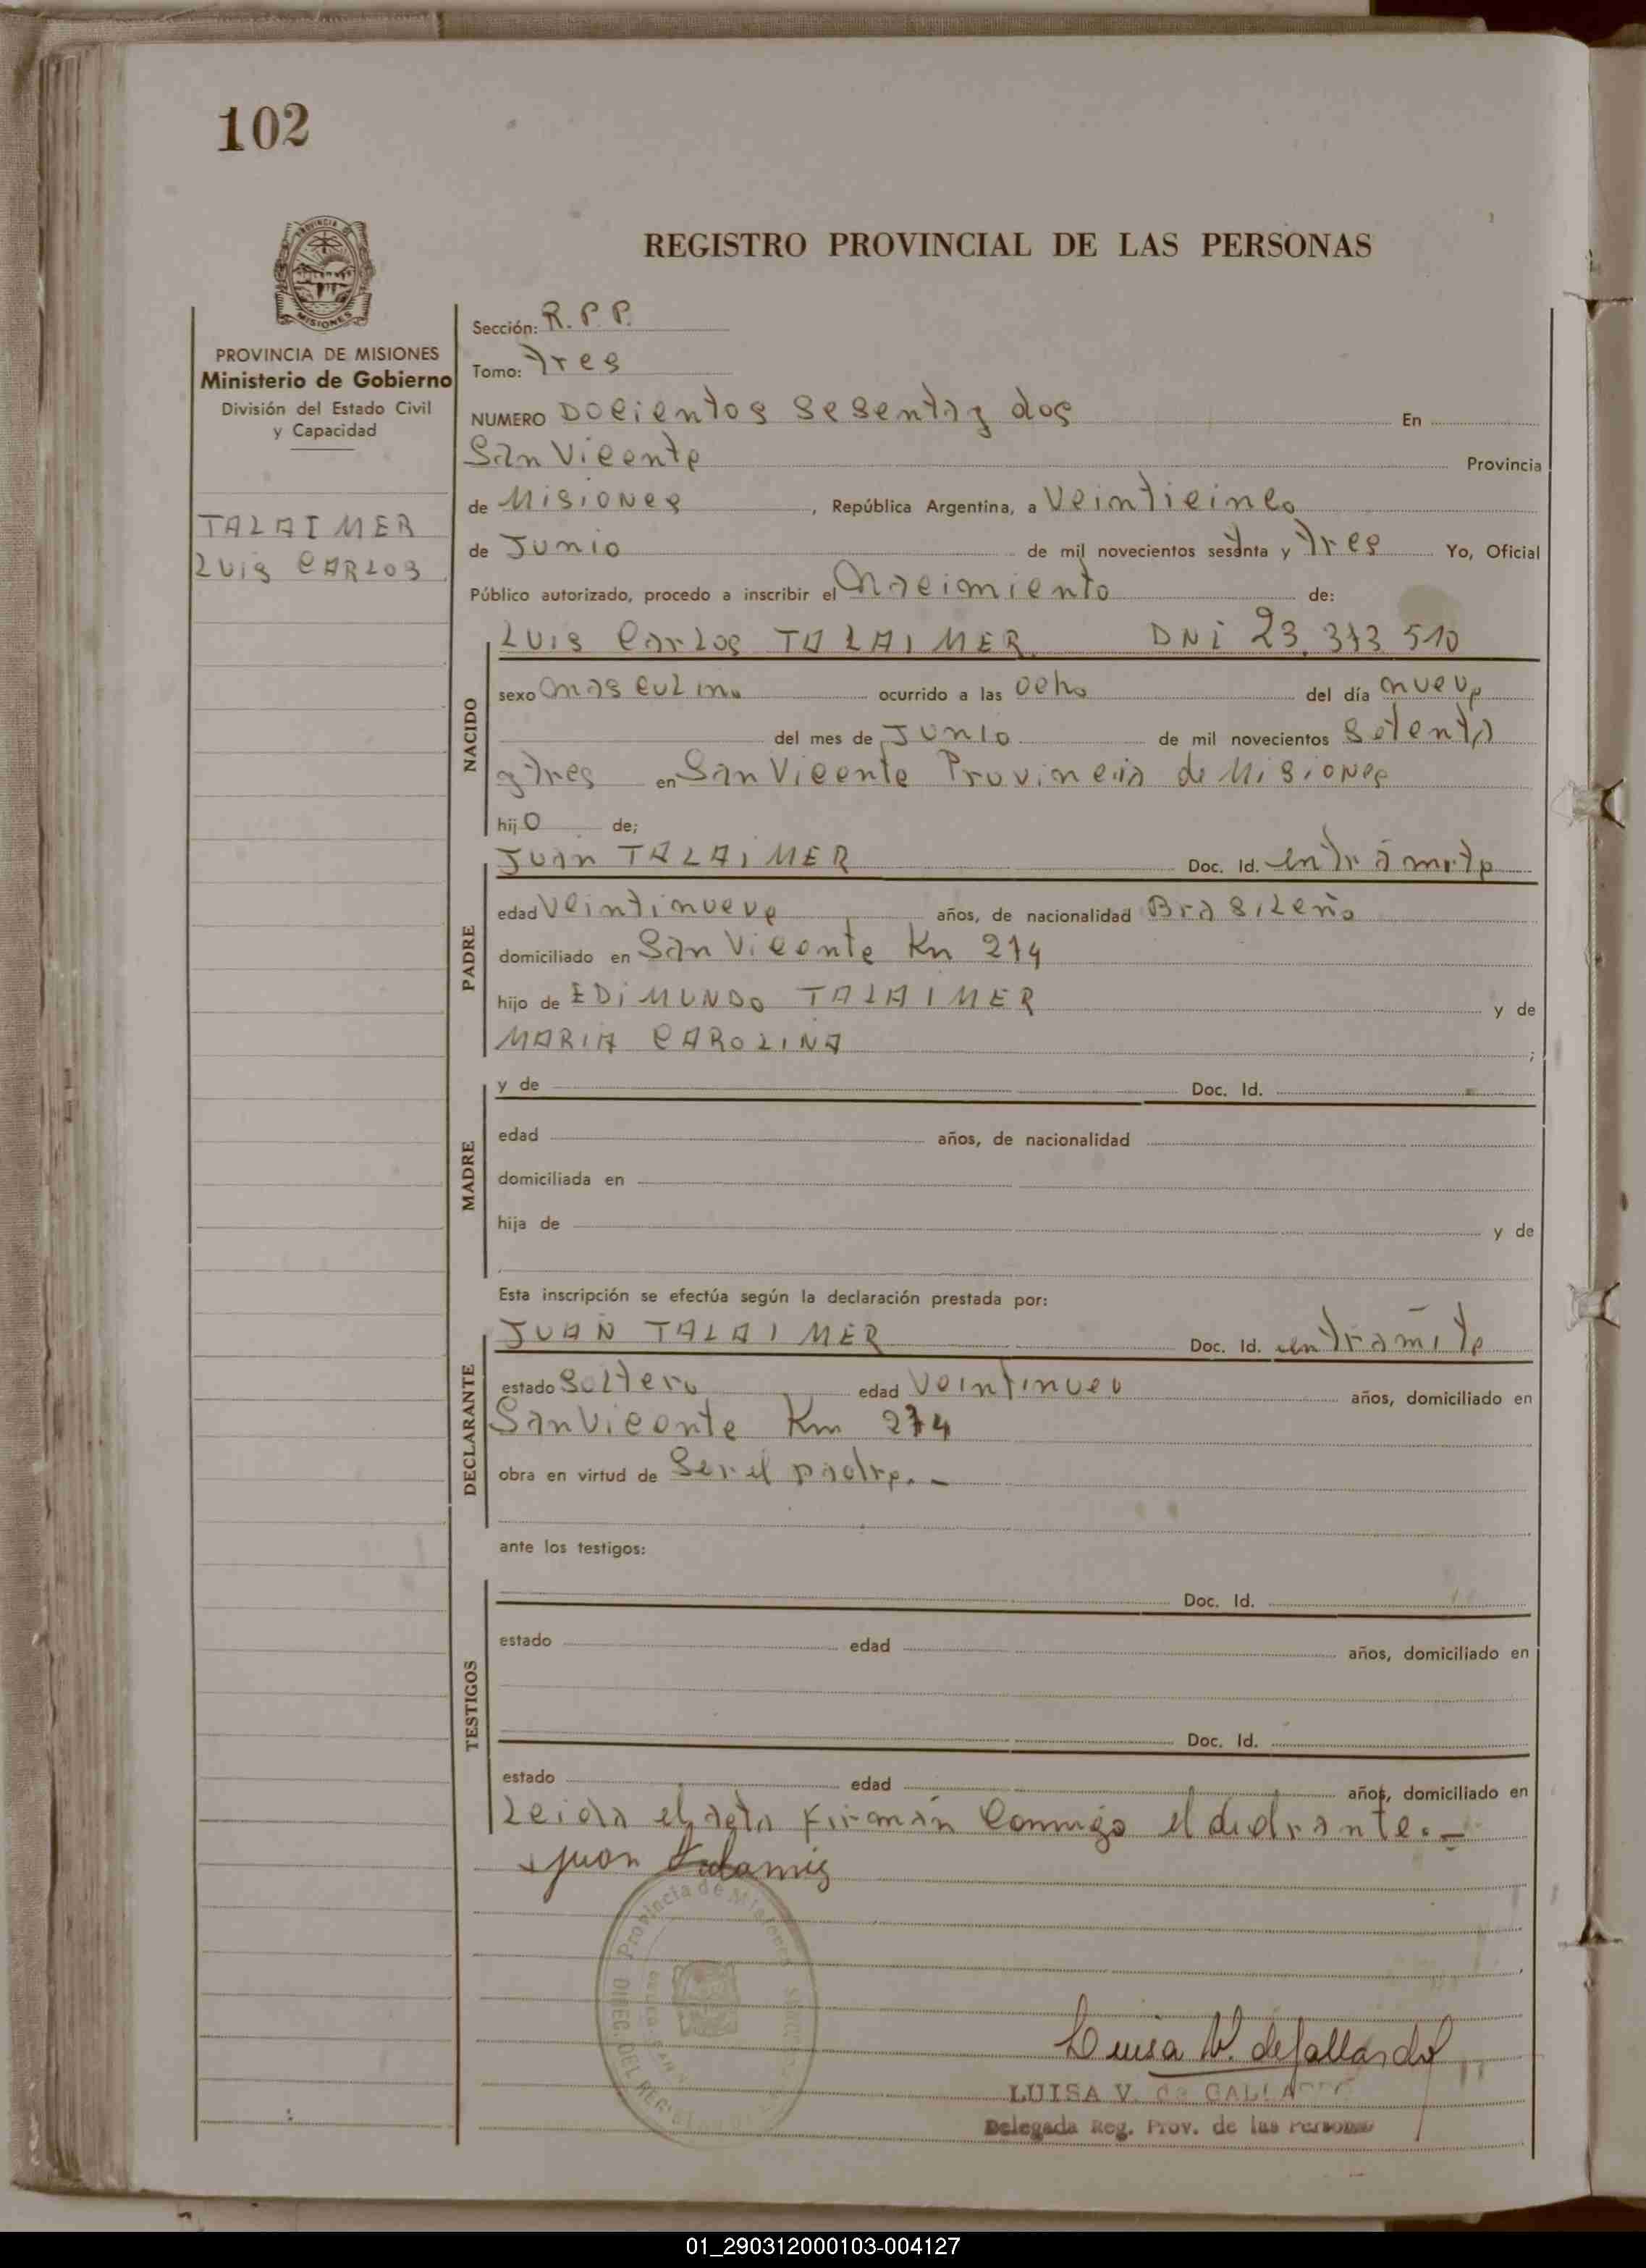 102
REGISTRO PROVINCIAL DE LAS PERSONAS
PROVINCIA DE
MISIONES
PROVINCIA DE MISIONES
Ministerio de Gobierno
División del Estado Civil
y Capacidad
TALAIMER
LUIS CARLOS
Sección: R.P.P.
Tomo: tres
NUMERO Docientos sesenta y dos En
San Vicente Provincia
de Misiones, República Argentina, a Veinticinco
de Junio de mil novecientos sesenta y tres Yo, Oficial
Público autorizado, procedo a inscribir el Nacimiento de:
Luis Carlos TALAIMER DNi 23.373.510
NACIDO
sexo masculino ocurrido a las ocho del día nueve
del mes de Junio de mil novecientos setenta
y tres en San Vicente Provincia de Misiones
hijo de;
PADRE
Juan TALAIMER Doc. Id. en trámite
edad Veintinueve años, de nacionalidad Brasileño
domiciliado en San Vicente Km 274
hijo de EDIMUNDO TALAIMER y de
MARIA CAROLINA ;
MADRE
y de Doc. Id.
edad años, de nacionalidad
domiciliada en
hija de y de
Esta inscripción se efectúa según la declaración prestada por:
DECLARANTE
JUAN TALAIMER Doc. Id. en trámite
estado soltero edad Veintinuev años, domiciliado en
San Vicente Km 274
obra en virtud de Ser el padre.-
ante los testigos:
TESTIGOS
Doc. Id.
estado edad años, domiciliado en
Doc. Id.
estado edad años, domiciliado en
Leida el acta Firman Conmigo el declrante.-
Juan
Provincia de Misiones
DIREC. DEL REGIST
Luisa V. de Gallardo
LUISA V. de GALLARDO
Delegada Reg. Prov. de las Personas
01_290312000103-004127